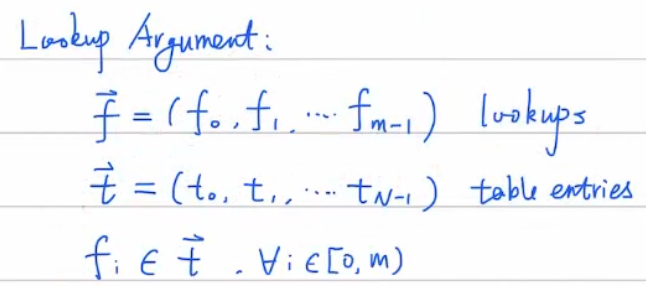 Lookup Argument:
f⃗ = (f₀, f₁, ... fₘ₋₁) lookups
t⃗ = (t₀, t₁, ... t_N₋₁) table entries
fᵢ ∈ t⃗ . ∀i ∈ [0, m)